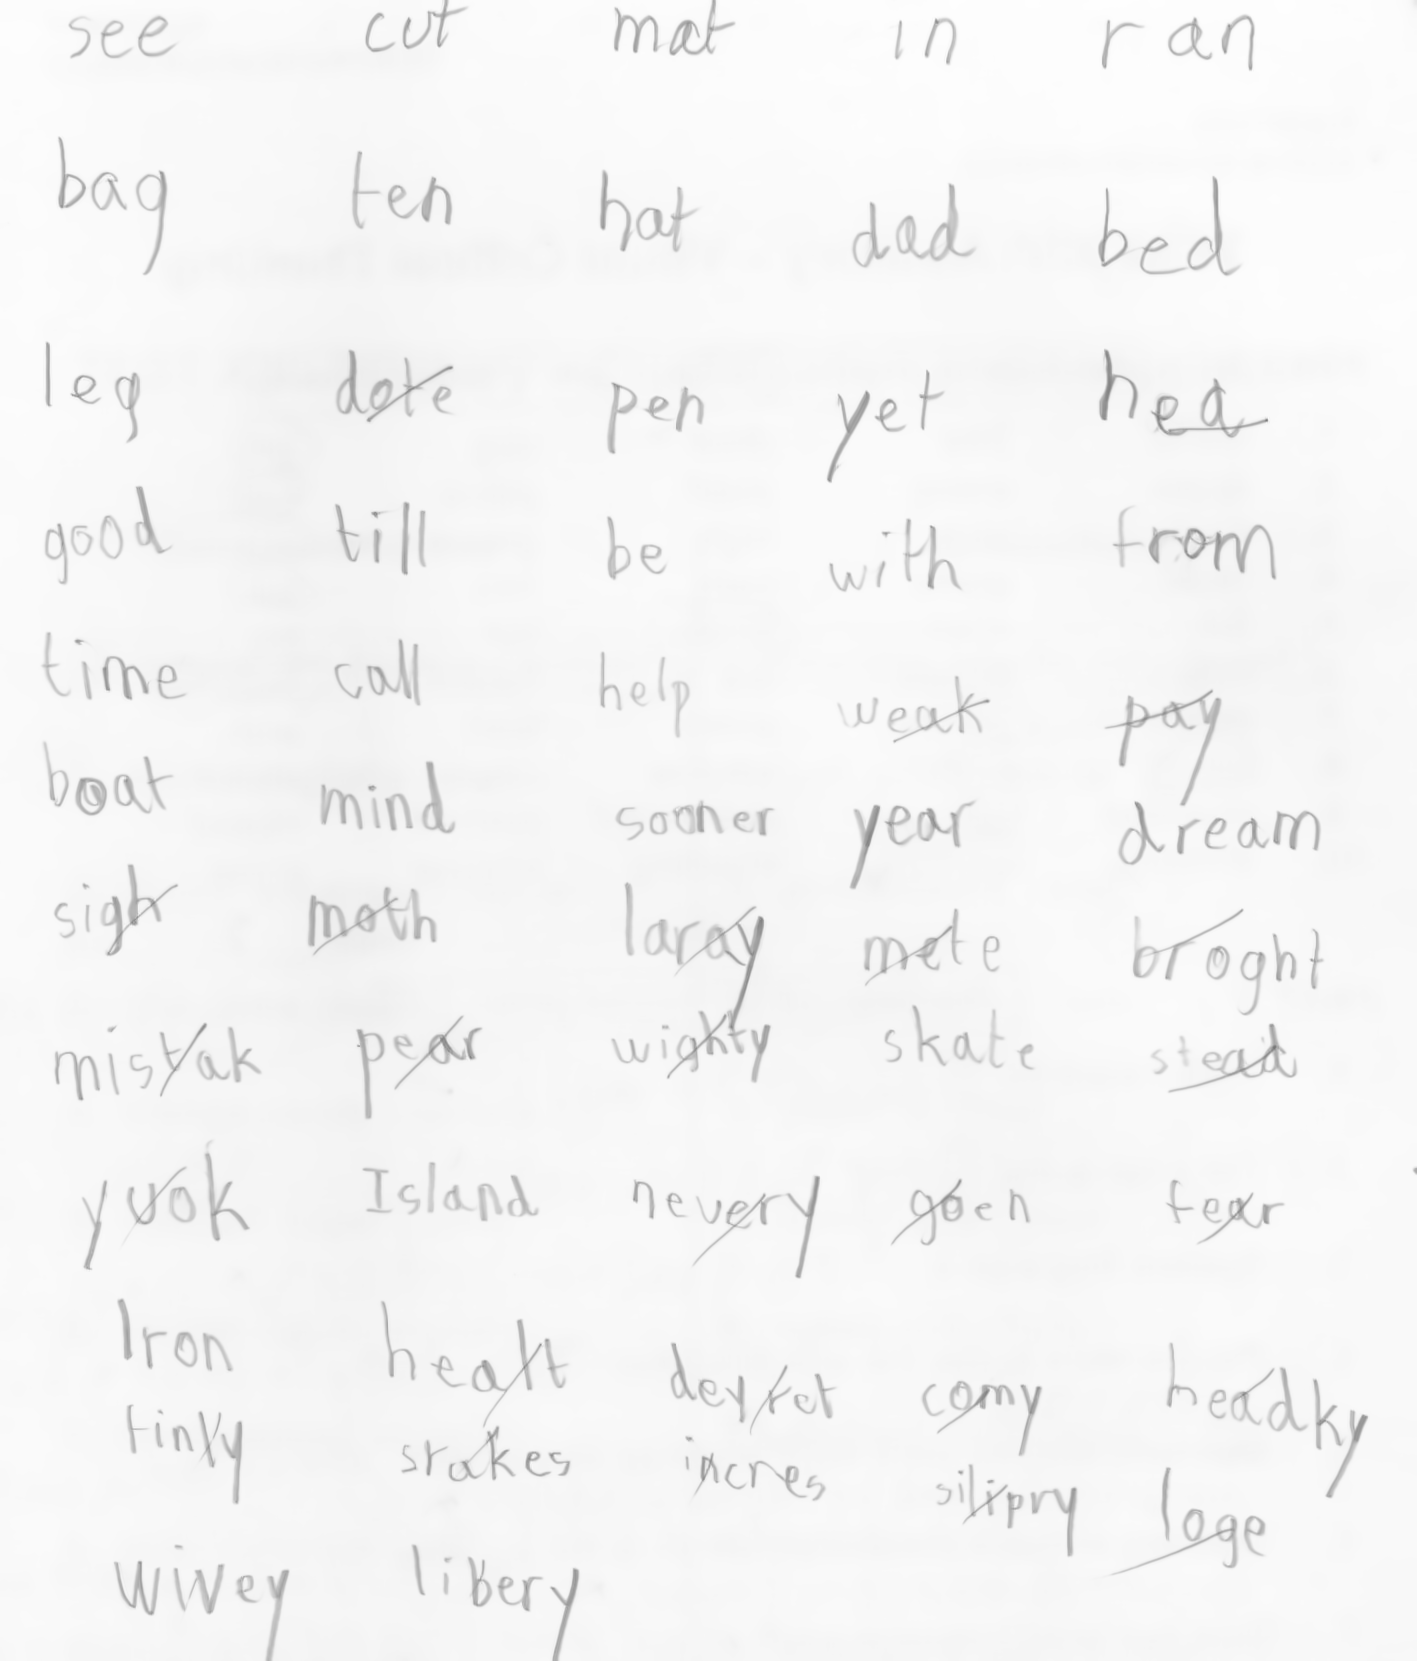 see cut mat in ran
bag ten hat dad bed
leg dote pen yet hea
good till be with from
time call help weak pay
boat mind sooner year dream
sigh moth laray mete broght
mistak pear wighty skate stead
yuok Island nevery goen fear
Iron healt deyret comy headky
tinly stakes incres silipry loge
wivey libery